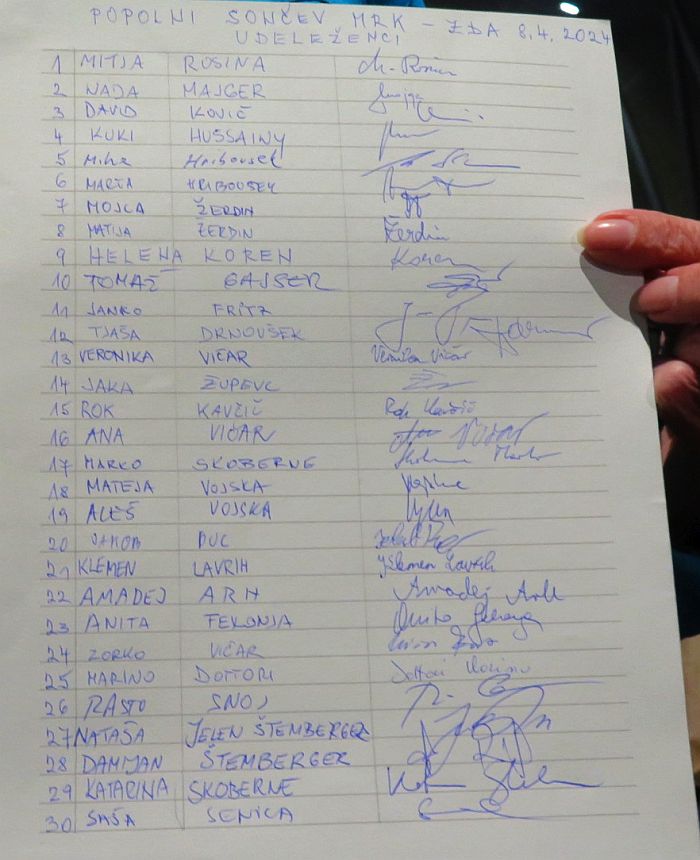 POPOLNI SONČEV MRK - ZDA 8.4.2024
UDELEŽENCI
1 MITJA ROSINA
2 NADA MAJGER
3 DAVID KOVIČ
4 KUKI HUSSAINY
5 Miha Hribovšek
6 MARTA HRIBOVŠEK
7 MOJCA ŽERDIN
8 MATIJA ŽERDIN Žerdin
9 HELENA KOREN Koren
10 TOMAŽ GAJSER
11 JANKO FRITZ
12 TJAŠA DRNOVŠEK
13 VERONIKA VIČAR Veronika Vičar
14 JAKA ŽUPEVC
15 ROK KAVČIČ Rok Kavčič
16 ANA VIČAR
17 MARKO SKOBERNE
18 MATEJA VOJSKA
19 ALEŠ VOJSKA
20 JAKOB PUC
21 KLEMEN LAVRIH Klemen Lavrih
22 AMADEJ ARH Amadej Arh
23 ANITA FEKONJA
24 ZORKO VIČAR
25 MARINO DOTTORI Dottori Marino
26 RASTO SNOJ
27 NATAŠA JELEN ŠTEMBERGER
28 DAMIJAN ŠTEMBERGER
29 KATARINA SKOBERNE
30 SAŠA SENICA